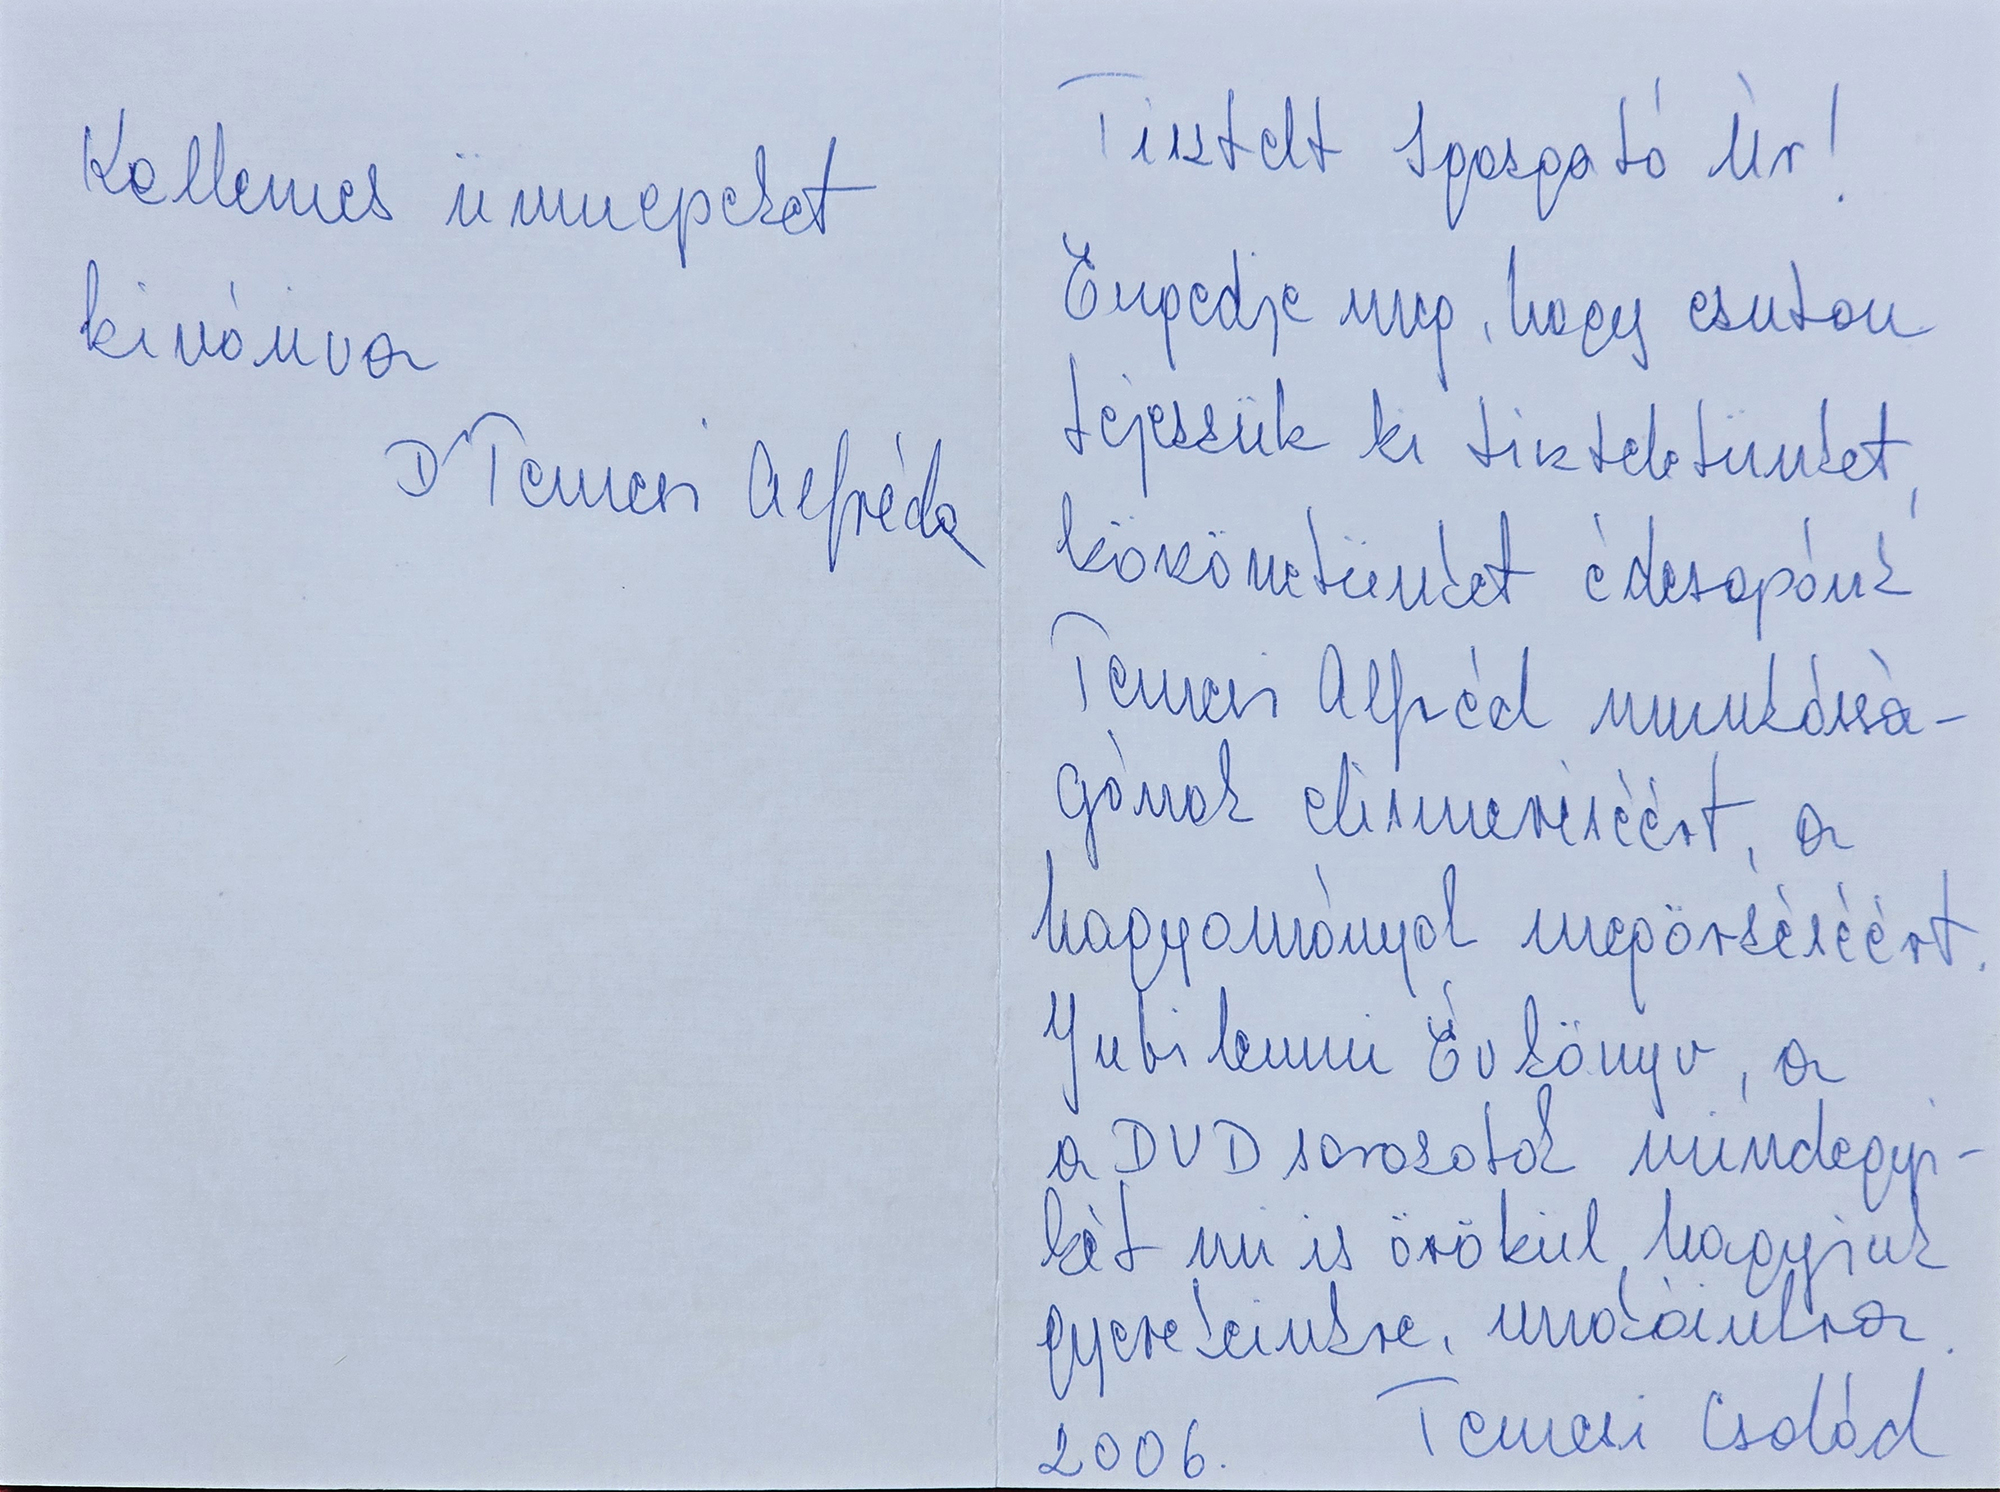 Kellemes ünnepeket
kivánva
Dr Temesi Alfréda
Tisztelt Igazgató Úr!
Engedje meg, hogy ezuton
fejezzük ki tiszteletünket,
köszönetünket édesapánk
Temesi Alfréd munkássá-
gának elismeréséért, a
hagyományok megőrzéséért.
Jubileumi Évkönyv, a
a DVD sorozatok mindegyi-
két mi is örökül hagyjuk
gyerekeinkre, unokáinkra.
2006. Temesi Család